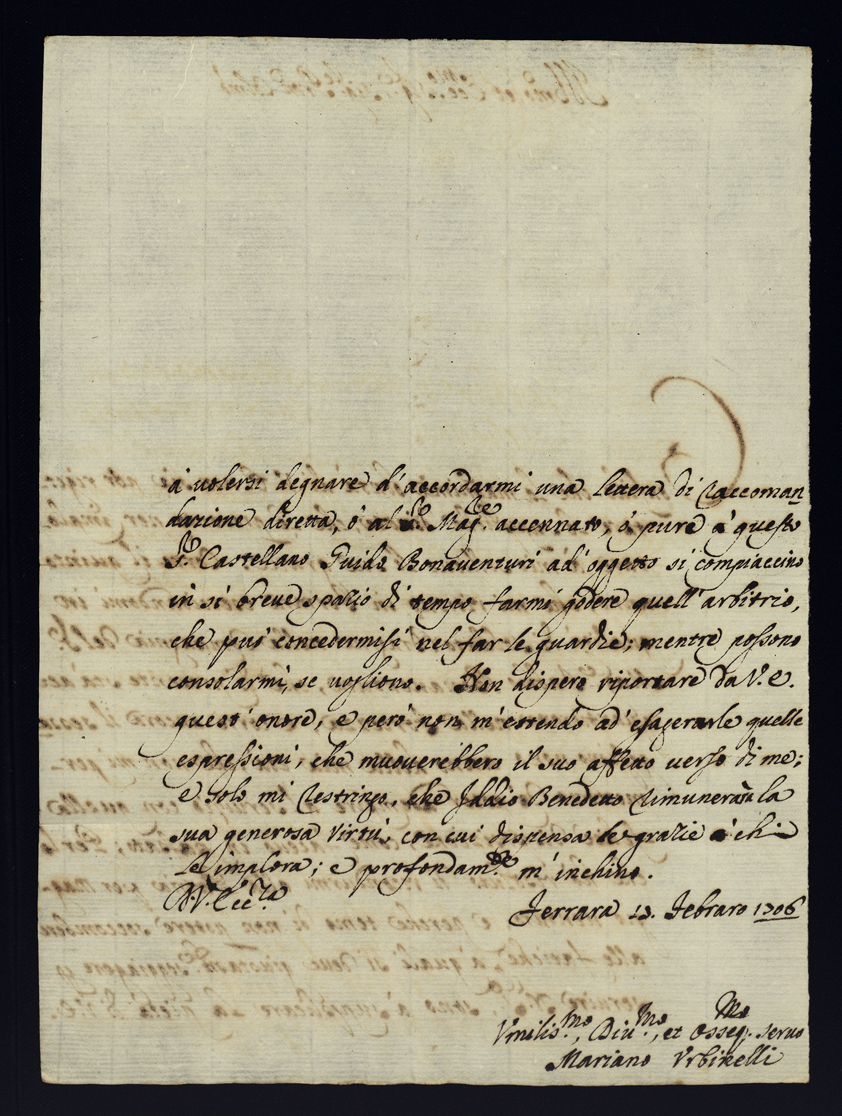 à volersi degnare d'accordarmi una lettera di raccoman
dazione diretta, ò al S.r Mag.re accennato, ò pure à questo
S.r Castellano Guido Bonaventuri ad' oggetto si compiaccino
in sì breve spazio di tempo farmi godere quell' arbitrio,
che può concedermisi nel far le guardie; mentre possono
consolarmi, se vogliono. Non dispero riportare da V. E.
quest' onore, e però non m'estendo ad' esagerarle quelle
espressioni, che muoverebbero il suo affetto verso di me;
e solo mi restringo, che Iddio Benedetto rimunererà la
sua generosa virtù, con cui dispensa le grazie à chi
le implora; e profondam.te m' inchino.
D. V. Ecc.za
Ferrara 13. Febraro 1706
Umilis.mo, Div.mo, et Osseq.mo servo
Mariano Urbinelli